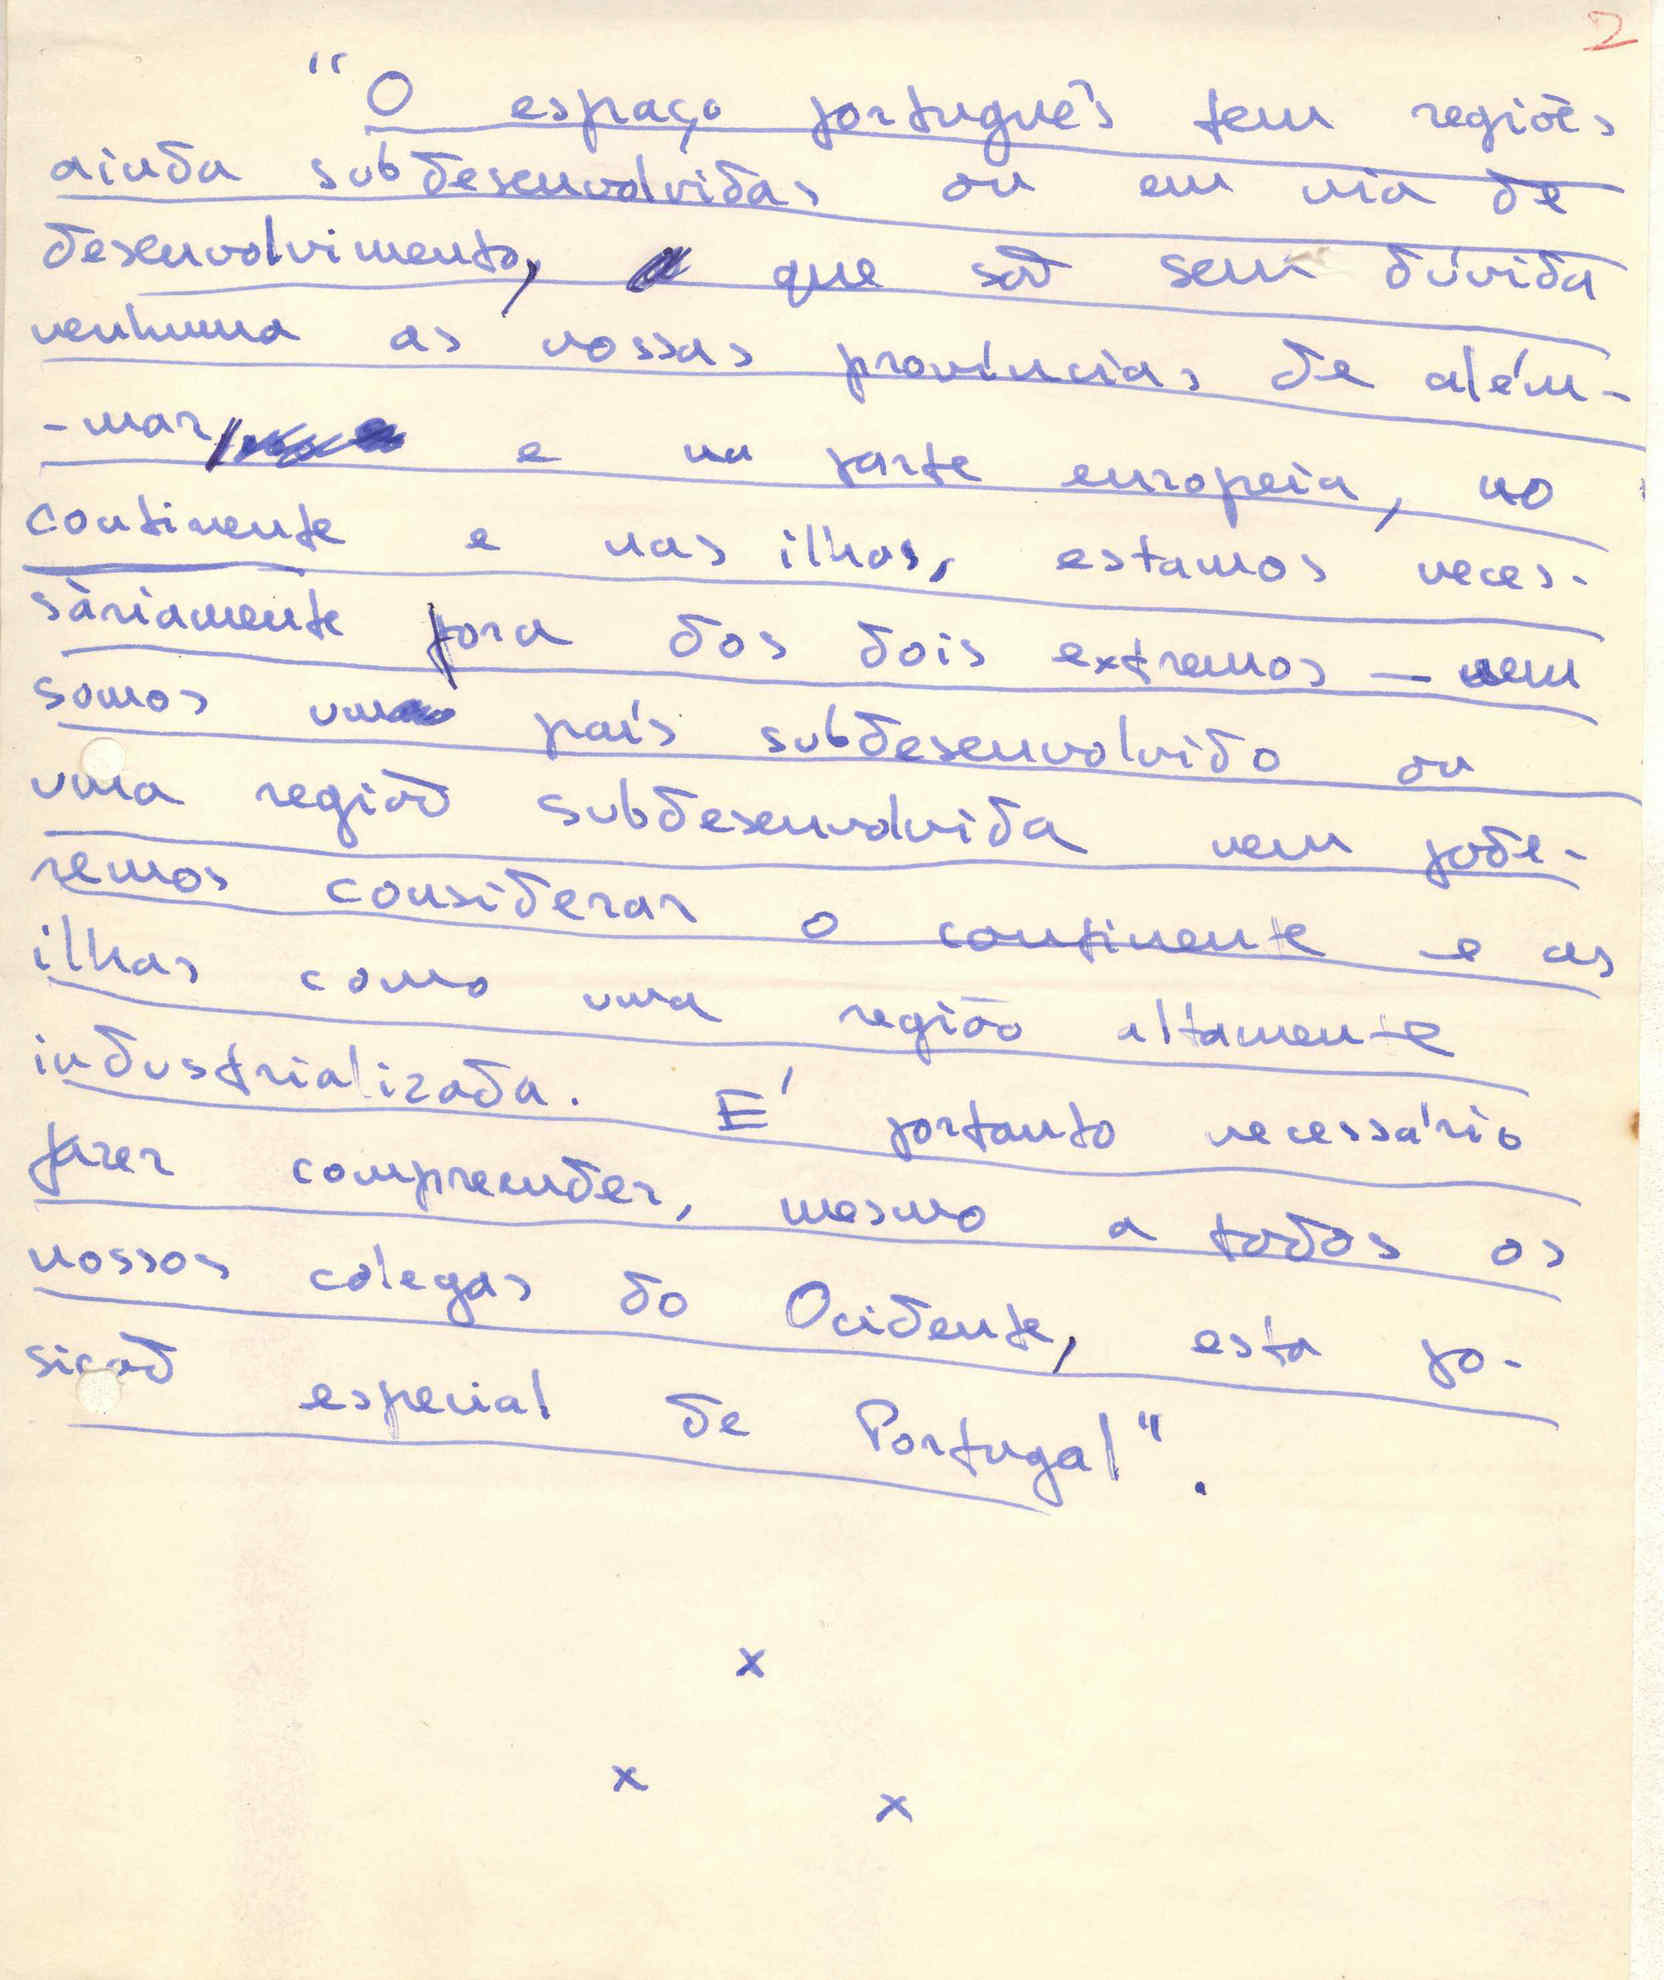 2
"O espaço português tem regiões
ainda subdesenvolvidas ou em via de
desenvolvimento, que são sem dúvida
nenhuma as nossas províncias de além-
-mar, e na parte europeia, no
continente e nas ilhas, estamos neces-
sàriamente fora dos dois extremos — nem
somos um país subdesenvolvido ou
uma região subdesenvolvida nem pode-
remos considerar o continente e as
ilhas como uma região altamente
industrializada. É portanto necessário
fazer compreender, mesmo a todos os
nossos colegas do Ocidente, esta po-
sição especial de Portugal".
x
x x